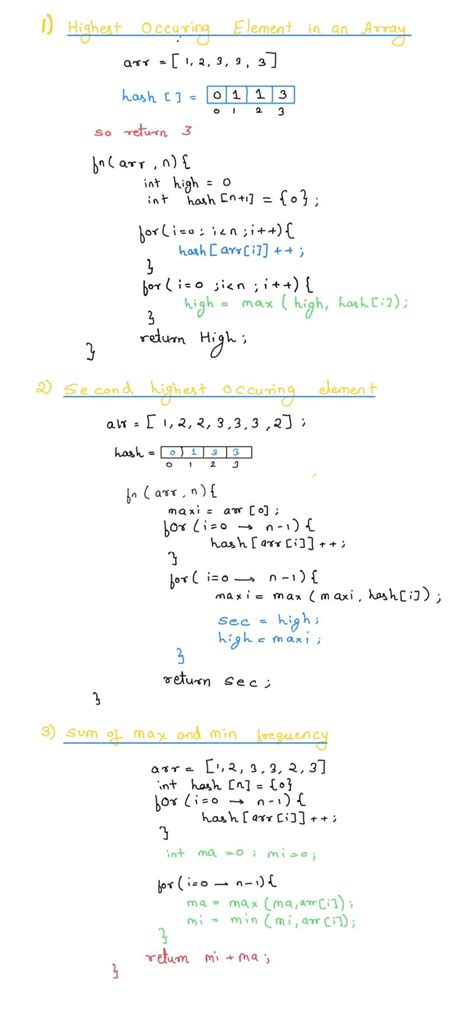 1) Highest Occuring Element in an Array
arr = [1, 2, 3, 3, 3]
hash [] = 0 1 1 3
0 1 2 3
so return 3
fn(arr, n){
int high = 0
int hash [n+1] = {0};
for(i=0; i<n; i++){
hash[arr[i]]++;
}
for(i=0; i<n; i++){
high = max (high, hash[i]);
}
return High;
}
2) Second highest occuring element
arr = [1, 2, 2, 3, 3, 3, 2];
hash = 0 1 3 3
0 1 2 3
fn (arr, n){
maxi = arr[0];
for (i=0 → n-1){
hash[arr[i]]++;
}
for( i=0 → n-1){
maxi = max (maxi, hash[i]);
sec = high;
high = maxi;
}
return sec;
}
3) Sum of max and min frequency
arr = [1, 2, 3, 3, 2, 3]
int hash [n] = {0}
for (i=0 → n-1){
hash[arr[i]]++;
}
int ma =0; mi=0;
for(i=0 → n-1){
ma = max (ma, arr[i]);
mi = min (mi, arr[i]);
}
return mi + ma;
}